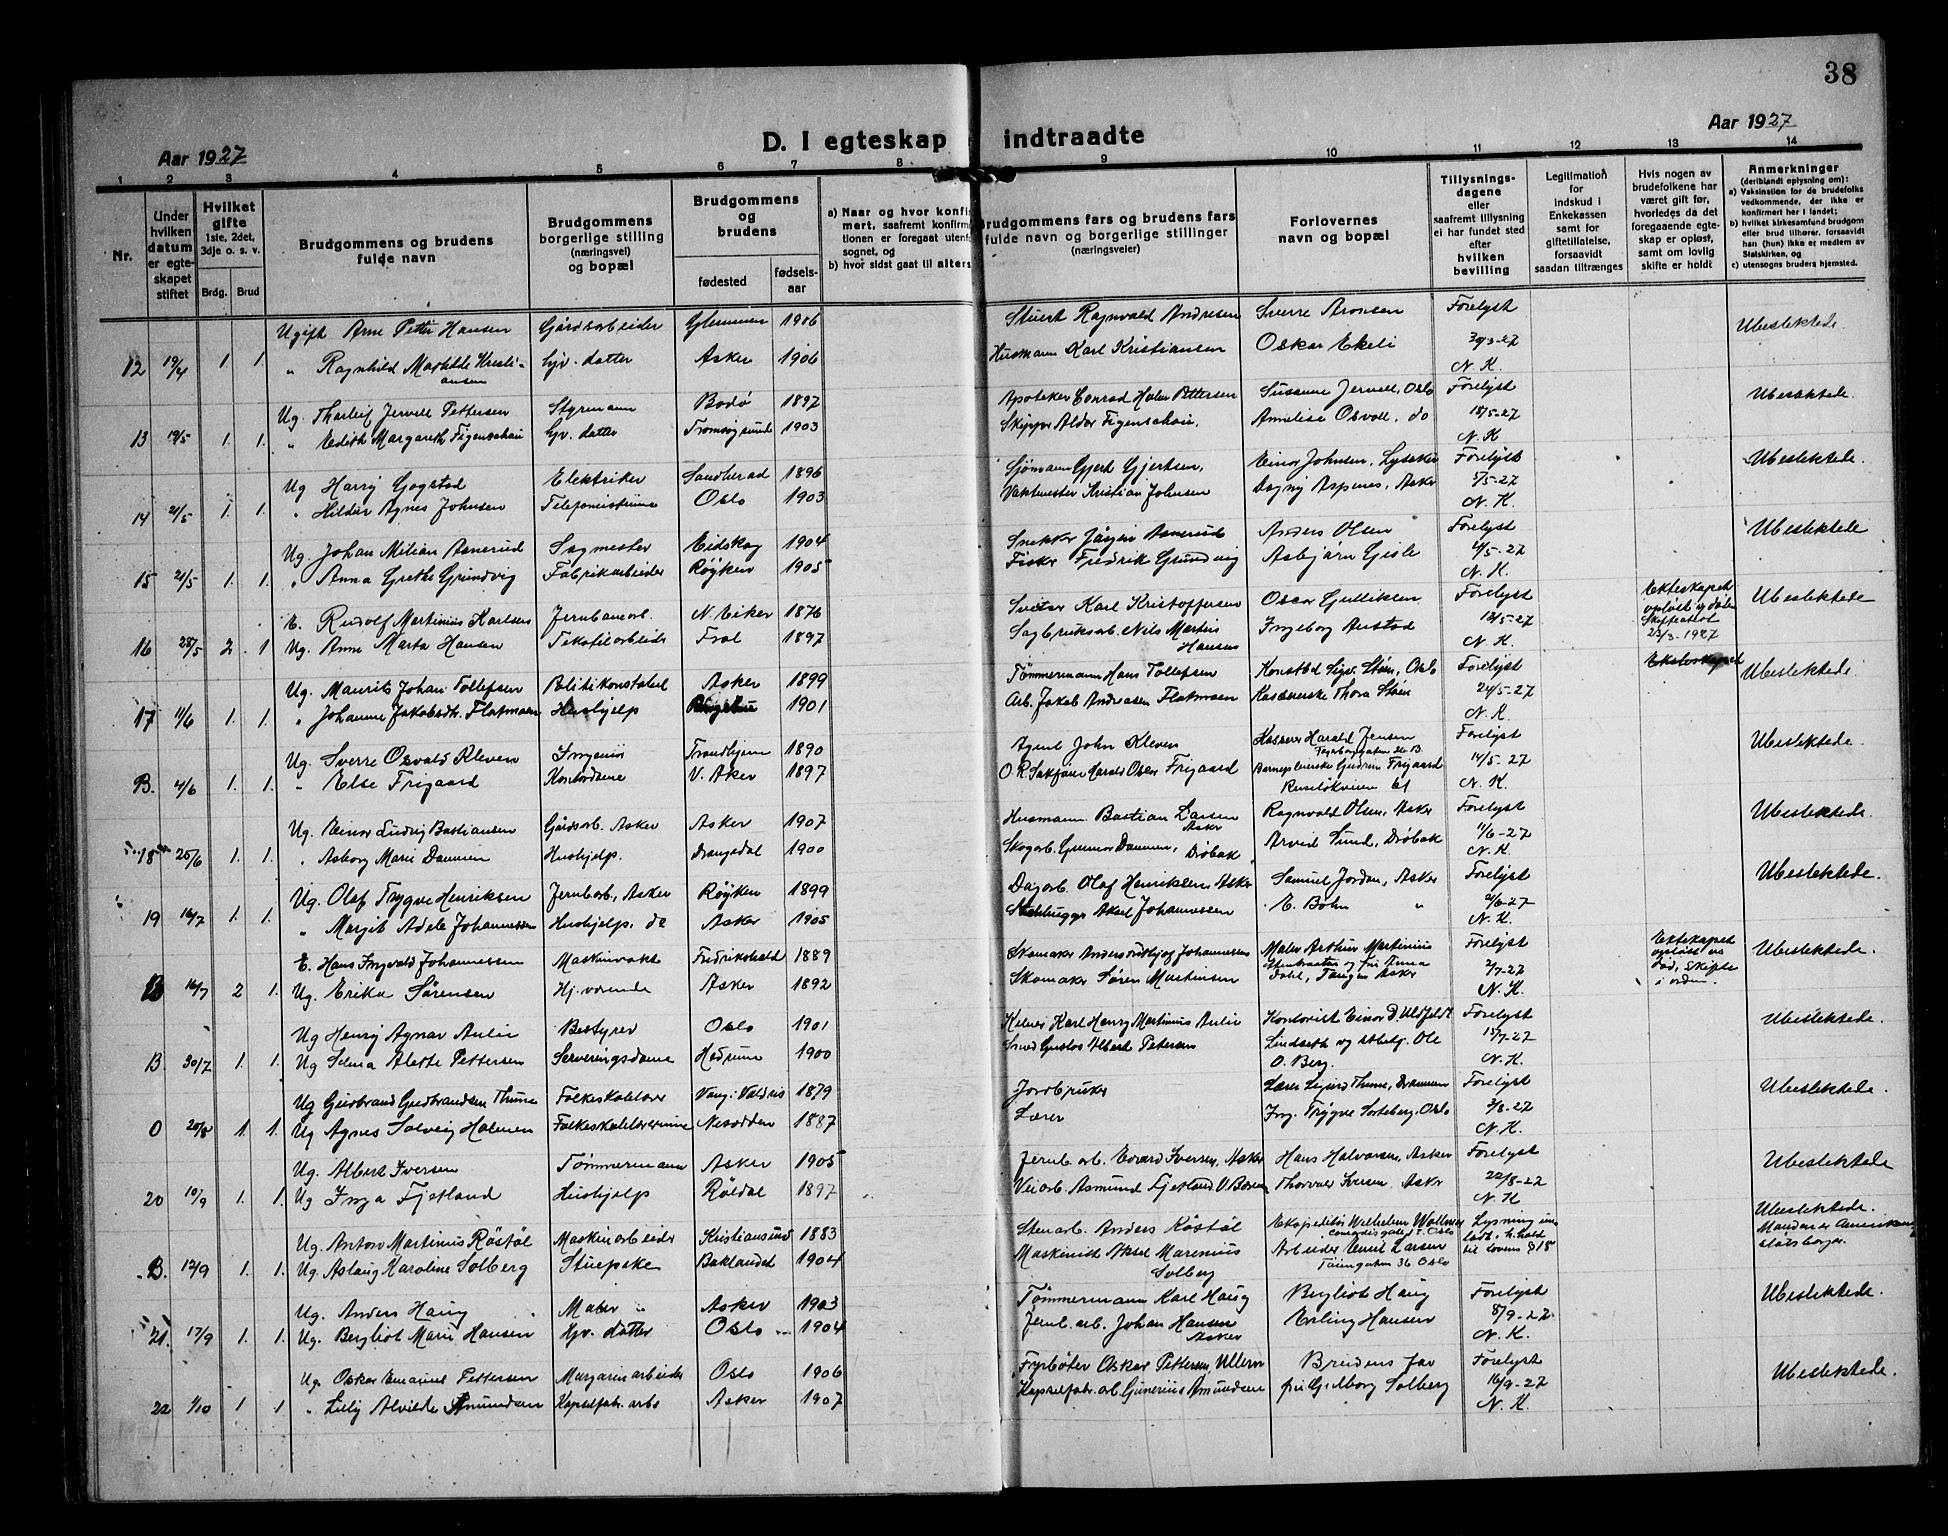 38
D. I egteskap indtraadte
Aar 1927
Aar 1927
1 2 3 4 5 6 7 8 9 10 11 12 13 14
Nr.
Under hvilken datum er egteskapet stiftet
Hvilket gifte 1ste, 2det, 3dje o. s. v.
Brdg. Brud
Brudgommens og brudens fulde navn
Brudgommens borgerlige stilling (næringsvei) og bopæl
Brudgommens og brudens
fødested
fødselsaar
a) Naar og hvor konfirmert, saafremt konfirmationen er foregaat utenfor sognet, og
b) hvor sidst gaat til alters
Brudgommens fars og brudens fars fulde navn og borgerlige stillinger (næringsveier)
Forlovernes navn og bopæl
Tillysningsdagene eller saafremt tillysning ei har fundet sted efter hvilken bevilling
Legitimation for indskud i Enkekassen samt for giftetillatelse, forsaavidt saadan tiltrænges
Hvis nogen av brudefolkene har været gift før, hvorledes da det foregaaende egteskap er opløst, samt om lovlig skifte er holdt
Anmerkninger (deriblandt oplysning om): a) Vaksination for de brudefolks vedkommende, der ikke er konfirmert her i landet; b) hvilket kirkesamfund brudgom eller brud tilhører, forsaavidt han (hun) ikke er medlem av Statskirken, og c) utensogns bruders hjemsted.
Ugift Arne Petter Hansen Gårdsarbeider Glemmen 1906 Stuert Ragnvald Andresen Sverre Aronsen Forelyst Ubeslektede.
12 19/4 1. 1. " Ragnhild Mathilde Kristiansen hjv. datter Asker 1906 Husmann Karl Kristiansen Oskar Ekeli 30/3-27 N. K.
Ug. Tharleif Jervell Pettersen Styrmann Bodø 1897 Apoteker Conrad Holm Pettersen Susanne Jervell, Oslo Forelyst
13 19/5 1. 1. " Edith Margareth Figenschau hjv. datter Tromsøysund 1903 Skipper Aldor Figenschau, Annelise Osvoll, do 18/5-27 N. K
Ug Harry Gogstad Elektriker Sandherad 1896 Sjømann Gjert Gjertsen, Einar Johnsen, Lysaker Forelyst Ubeslektede.
14 21/5 1. 1. " Hildur Agnes Johnsen Telefonistinne Oslo 1903 Vaktmester Kristian Johnsen Dagny Aspenes, Asker 5/5-27 N. K.
Ug. Johan Milian Asnerud Sagmester Eidskog 1904 Snekker Jørgen Asnerud Anders Olsen Forelyst Ubeslektede
15 21/5 1. 1. " Anna Grethe Grundvig Fabrikarbeider Røyken 1905 Fisker Fredrik Grundvig Asbjørn Gisle 4/5-27 N. K.
E. Rudolf Martinius Karlsen Jernbanearb. N. Eiker 1876 Karl Kristoffersen Oscar Gulliksen Forelyst Ubeslektede
16 28/5 2. 1 Ug. Anne Marta Hansen Tekstilarbeider Frol 1897 Sagbruksarb. Nils Martin Hansen Ingeborg Austad 12/5-27 N. K. 22/3-1927
Ug. Maurits Johan Tollefsen Politikonstabel Asker 1899 Tømmermann Hans Tollefsen Konstbd Sigv. Støen, Oslo Forelyst Ubeslektede
17 11/6 1. 1. " Johanne Jakobsdtr. Flatmoen Hushjelp 1901 Arb. Jakob Andreasen Flatmoen Kassererske Thora Støen 24/5-27 N. K.
Ug. Sverre Osvald Kleven Ingeniør Trondhjem 1890 Agent John Kleven Kasserer Harald Jensen Forelyst Ubeslektede.
B. 4/6 1. 1. " Else Frigaard Kontordame V. Aker 1897 O. R. Sakfører Harald Oscar Frigaard Barnepleierske Gudrun Frigaard Ruseløkveien 14/5-27 N. K.
Ug. Einar Ludvig Bastiansen Gårdsarb. Asker Asker 1907 Husmann Bastian Larsen Asker Ragnvald Olsen, Asker Forelyst Ubeslektede.
18 25/6 1. 1. " Asborg Marie Dammen Hushjelp. Drangedal 1900 Skogarb. Gunnar Dammen, Drøbak Arvid Lund, Drøbak 11/6-27 N. K.
Ug. Olaf Trygve Henriksen Jernbarb., Asker Røyken 1899 Dagarb. Olaf Henriksen, Asker Samuel Jordan, Asker Forelyst Ubeslektede.
19 16/7 1. 1. " Margit Adele Johannessen Hushjelp, do Asker 1905 Aksel Johannessen E. Bohn " 2/6-27 N. K.
E. Hans Ingvald Johannessen Maskinvakt Fredrikshald 1889 Skomaker Johannessen Maler Arthur Martinius Forelyst Ekteskapet opløst ved død, skifte i orden. Ubeslektede.
16/7 2 1. Ug. Erika Sørensen Hj. værende Asker 1892 Skomaker Søren Martinsen Asker 2/7-27 N. K.
Ug Henry Agnar Aulie Bestyrer Oslo 1901 Kelner Karl Henry Martinius Aulie Kontorist Einar D. Forelyst Ubeslektede.
B. 30/7 1. 1. Ug Selma Alette Pettersen Serveringsdame Hedrum 1900 Smed Gustav Albert Petersen Lindseth og Ole O. Berg. 15/7-27 N. K.
Ug Gudbrand Gudbrandsen Thune Folkeskolelærer Vang i Valdres 1879 Jordbruker Lærer Sigurd Thune, Drammen Forelyst Ubeslektede.
O 20/8 1. 1. Ug Agnes Solveig Holmen Folkeskolelærerinne Nesodden 1887 Lærer Ing. Trygve Sorteberg, Oslo 3/8-27 N. K.
Ug. Albert Iversen Tømmermann Asker 1905 Jernb. arb. Edvard Iversen, Asker Hans Halvorsen, Asker Forelyst Ubeslektede
20 10/9 1. 1. Ug Inga Fjetland Hushjelp Røldal 1897 Veiarb. Asmund Fjetland, Thorvald Iversen, Asker 22/8-27 N. K
Ug. Anton Martinius Røstøl Maskinarbeider Kristiansund 1883 Stenarb. Anders Røstøl Ekspeditør Wilhelm Wollner Oslo Lysning Ubeslektede. Manden er Amerikansk statsborger.
B. 17/9 1. 1. Ug. Aslaug Karoline Solberg Stuepike Baklandet 1904 Maskinist Aksel Marenius Solberg Arbeider Emil Larsen 36 Oslo til lovens § 18
Ug. Anders Haug Maler Asker 1903 Tømmermann Karl Haug Bergliot Haug Forelyst Ubeslektede.
21. 17/9 1. 1. Ug. Bergliot Marie Hansen hjv. datter Oslo 1904 Jernb. arb. Johan Hansen Asker Erling Hansen 8/9-27 N. K.
Ug. Oskar Emanuel Pettersen Margarinarbeider Oslo 1906 Fyrbøter Oskar Pettersen, Ullern Brudens far Forelyst Ubeslektede.
22 1/10 1 1 " Lilly Alvilde Amundsen Kapselfabr. arb. Asker 1907 Kapselfabr. arb Gunerius Amundsen fru Gjelborg Solberg 16/9-27 N. K.